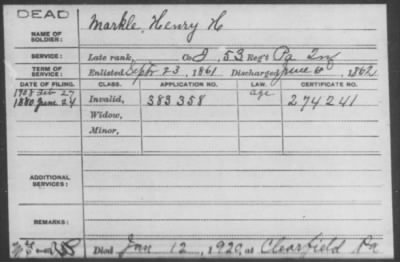 DEAD
NAME OF SOLDIER: Markle, Henry H
SERVICE: Late rank, Co. I, 53 Reg't Pa Inf
TERM OF SERVICE: Enlisted Sept 23, 1861 Discharged June 6, 1862
DATE OF FILING. CLASS. APPLICATION NO. LAW. CERTIFICATE NO.
1908 Feb 27 age
1880 June 24 Invalid, 383358 274241
Widow,
Minor,
ADDITIONAL SERVICES:
REMARKS:
Died Jan 12, 1920, at Clearfield Pa